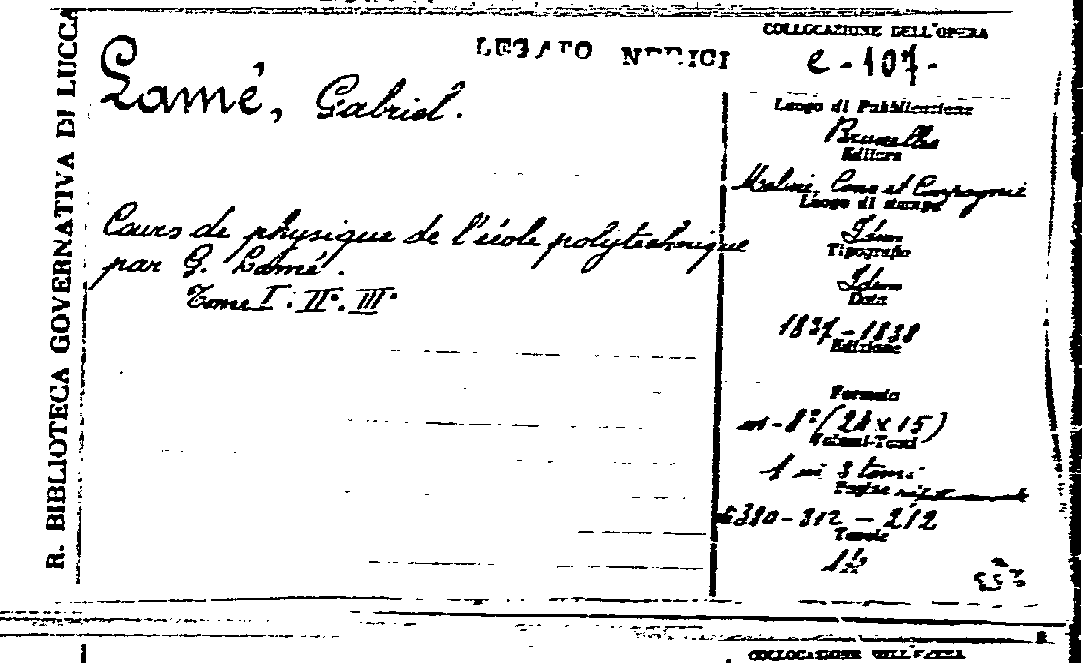 R. BIBLIOTECA GOVERNATIVA DI LUCCA
LEGATO NERICI
COLLOCAZIONE DELL'OPERA
e - 107 -
Lamé, Gabriel.
Cours de physique de l'école polytechnique
par G. Lamé.
Tome I. II. III.
Luogo di Pubblicazione
Bruxelles
Editore
et Compagnie
Luogo di stampa
Idem
Tipografia
Idem
Data
1837-1838
Edizione
Formato
in-8º (24 x 15)
Volumi-Tomi
1 in 3 tomi
Pagine
380-312 - 212
Tavole
COLLOCAZIONE DELL'OPERA